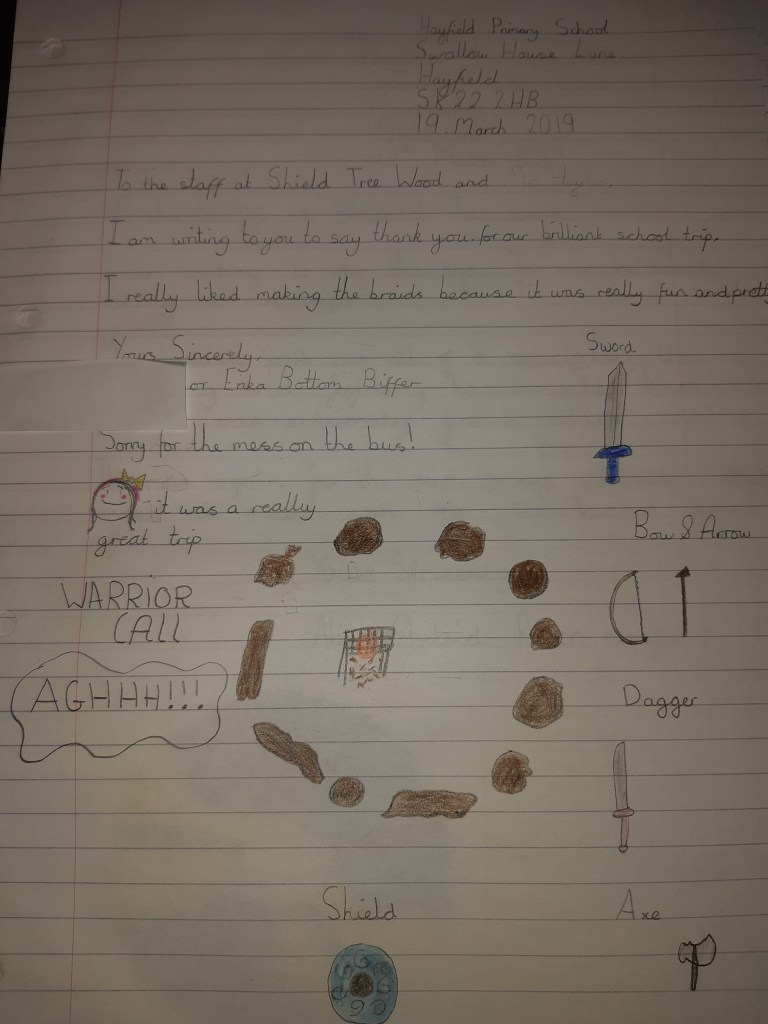 Hayfield Primary School
Swallow House Lane
Hayfield
SK22 2HB
19. March 2019
To the staff at Shield Tree Wood and
I am writing to you to say thank you. for our brilliant school trip.
I really liked making the braids because it was really fun and pretty
Yours Sincerely,
or Erika Bottom Biffer
Sorry for the mess on the bus!
it was a really
great trip
WARRIOR
CALL
AGHHH!!!
Sword
Bow & Arrow
Dagger
Shield
Axe